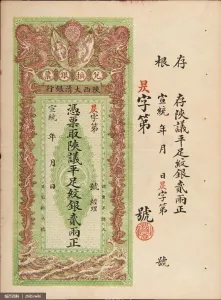 存根
存陝議平足紋銀貳兩正
宣統 年 月 日 昃字第 號
昃字第 號
兌換銀票
陝西大清銀行
憑票取陝議平足紋銀貳兩正
昃字第 號 經理
宣統 年 月 日